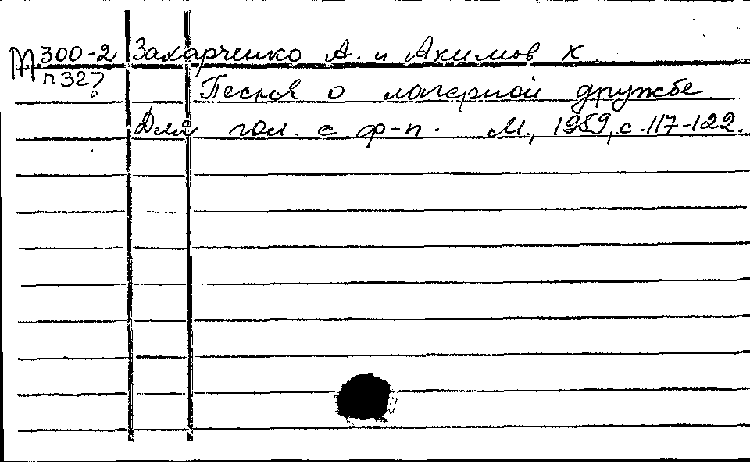 М 300-2 Захарченко А. и Акимов К
П327 Песня о лагерной дружбе
Для гол. с ф-п. М, 1959, с. 117-122.